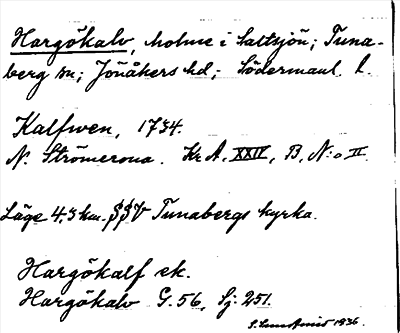 Hargökalv, holme i Saltsjön; Tuna-
berg sn; Jönåkers hd; Södermanl. l.
Kalfwen, 1734.
N. Strömcrona. Kr A, XXIV, B, N:o II.
Läge 4,3 km. SSV Tunabergs kyrka.
Hargökalf ek.
Hargökalv G. 56, Sj. 251.
1936.